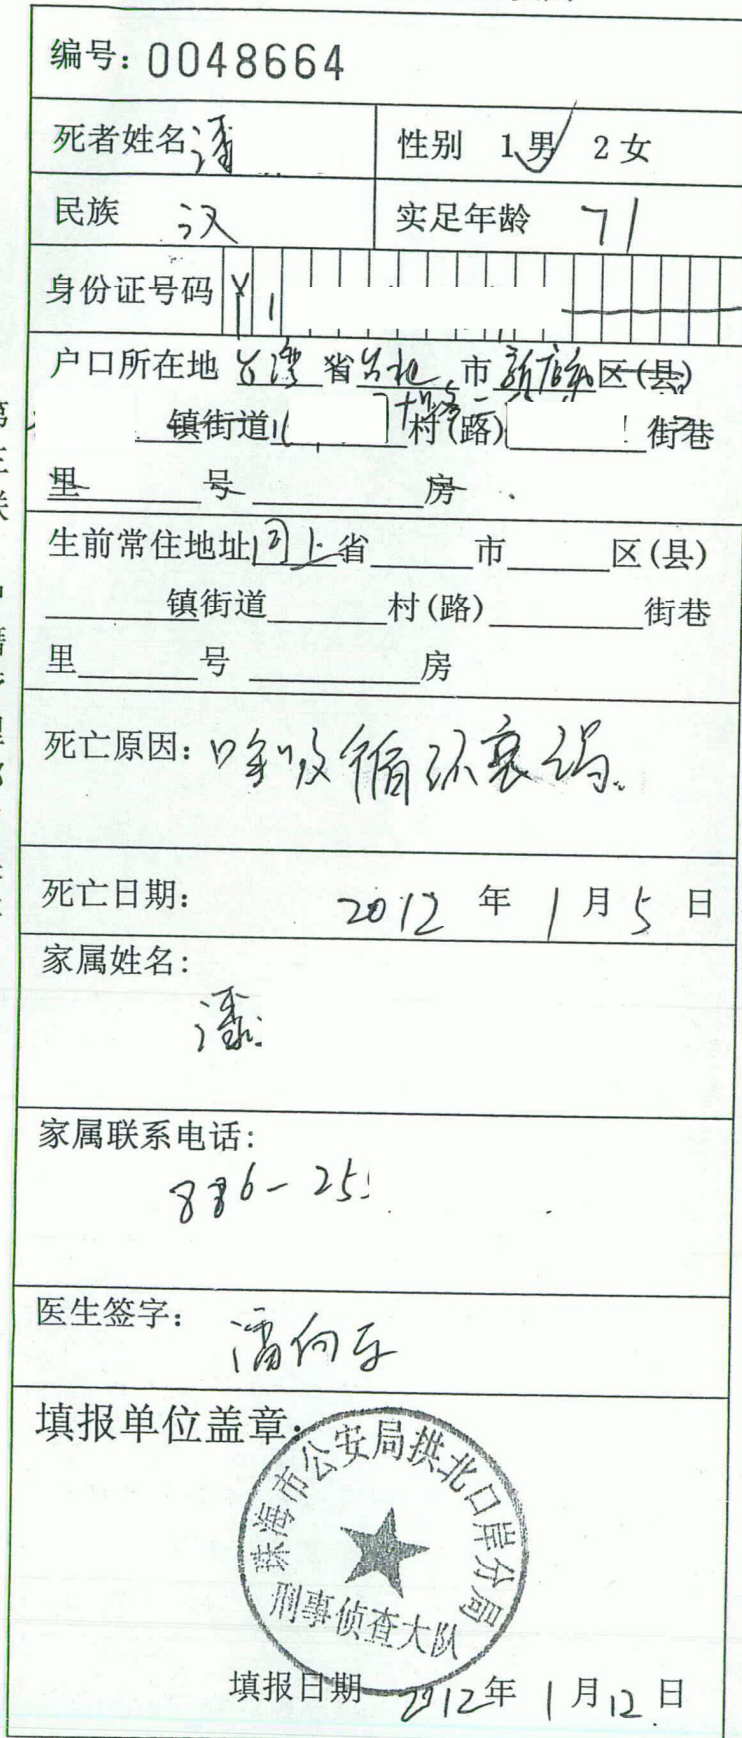 编号: 0048664
死者姓名 潘 性别 1男 2女
民族 汉 实足年龄 71
身份证号码 Y 1
户口所在地 台湾 省 台北 市 新店 区(县)
镇街道 村(路) 街巷
里 号 房
生前常住地址 同上 省 市 区(县)
镇街道 村(路) 街巷
里 号 房
死亡原因: 呼吸循环衰竭。
死亡日期: 2012 年 1 月 5 日
家属姓名:
潘
家属联系电话:
886-25
医生签字:
填报单位盖章:
珠海市公安局拱北口岸分局
刑事侦查大队
填报日期 2012年 1 月 12 日